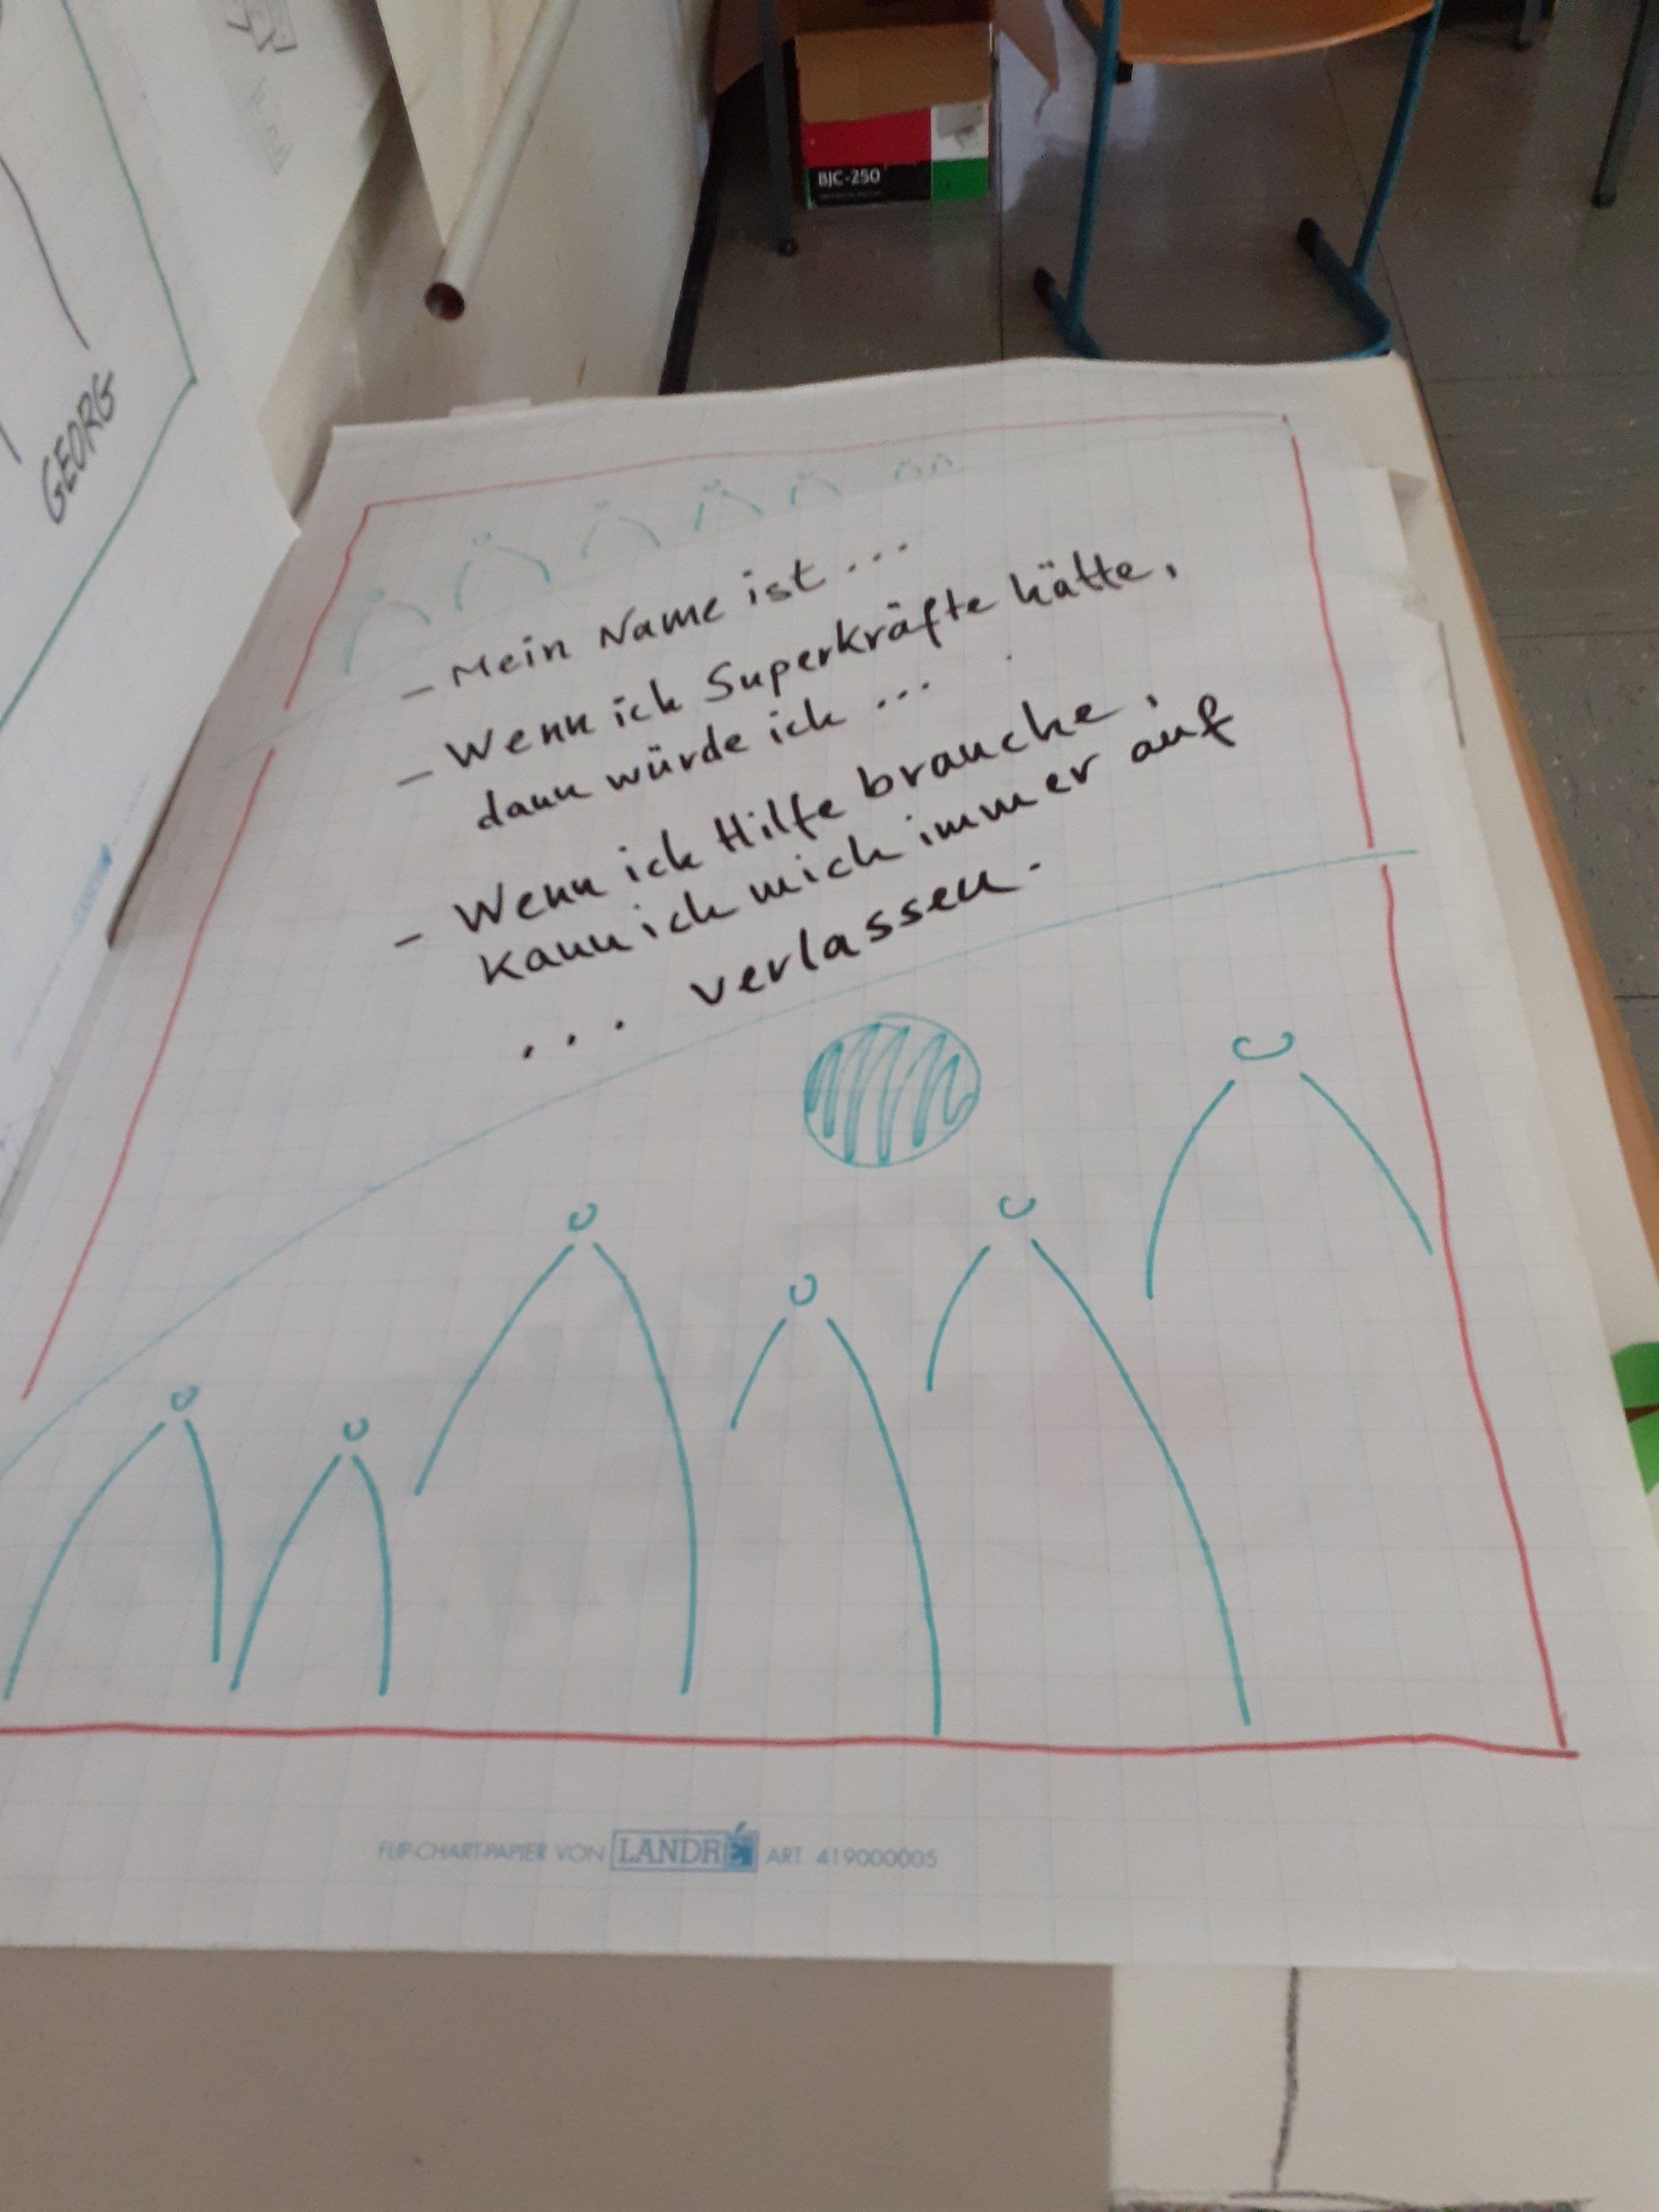 BJC-250
GEORG
– Mein Name ist ...
– Wenn ich Superkräfte hätte,
dann würde ich ...
– Wenn ich Hilfe brauche,
kann ich mich immer auf
... verlassen.
FLIP-CHART-PAPIER VON LANDRÉ ART. 419000005